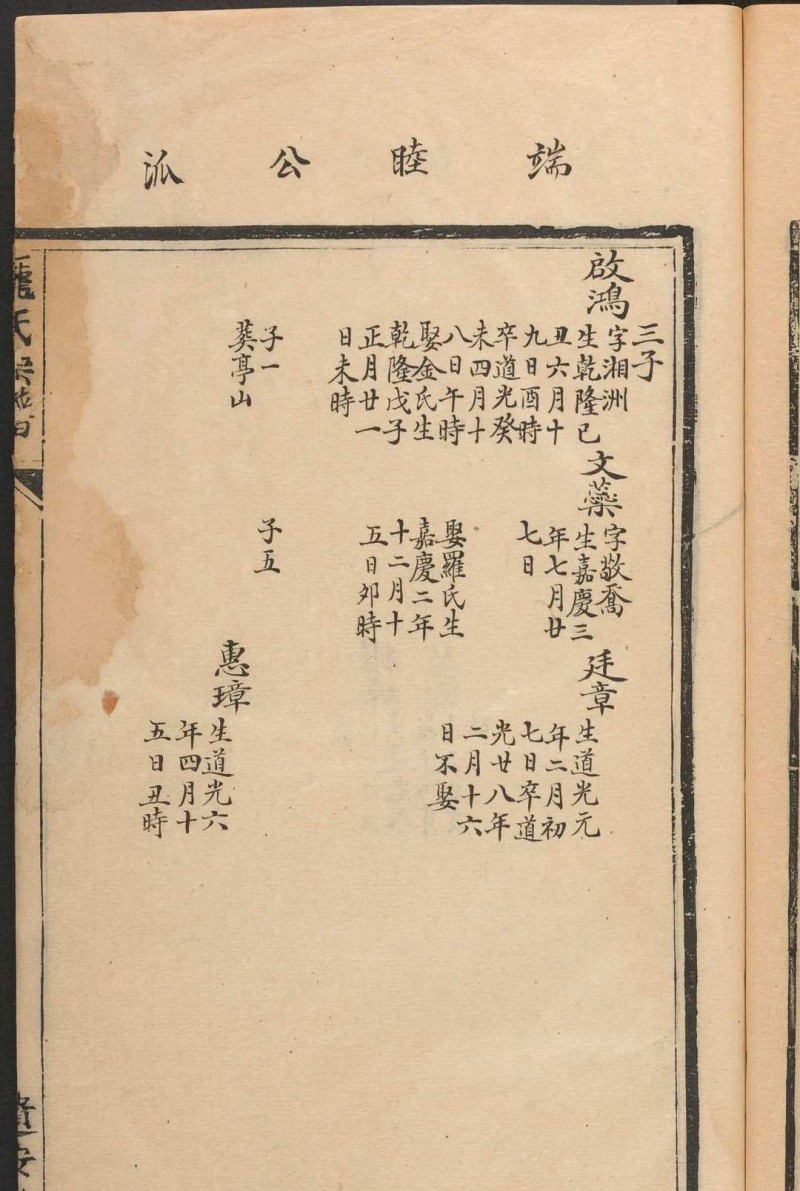 端睦公派
啟鴻
三子
字湘洲
生乾隆己
丑六月十
九日酉時
卒道光癸
未四月十
八日午時
娶金氏生
乾隆戊子
正月廿一
日未時
子一
葬亭山
文藥
字敬喬
生嘉慶三
年七月廿
七日
娶羅氏生
嘉慶二年
十二月十
五日夘時
子五
廷章
生道光元
年二月初
七日卒道
光廿八年
二月十六
日不娶
惠璋
生道光六
年四月十
五日丑時